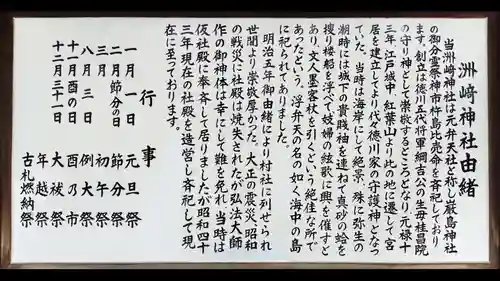 洲崎神社由緒
当洲崎神社は元弁天社と称し厳島神社
の御分霊祭神市杵島比売命を斉祀しており
まます。創立は徳川五代将軍綱吉公の生母桂昌院
の守り神として崇敬するところとなり、元禄十
三年江戸城中紅葉山より此の地に遷して宮
居を建立してより代々徳川家の守護神となっ
ていた。当時は海岸にして絶景、殊に弥生の
潮時には城下の貴賎袖を連ねて真砂の蛤を
捜り楼船を浮べて妓婦の絃歌に興を催すと
あり、文人墨客杖を引くという絶佳な所で
あったという。浮弁天の名の如く海中の島
に祀られてありました。
明治五年御由緒により村社に列せられ
世間より崇敬厚かった。大正の震災、昭和
の戦災に社殿は焼失されたが弘法大師
作の御神体は幸にして難を免れ当時は
仮社殿に奉斉して居りましたが昭和四十
三年現在の社殿を造営し斉祀して現
在に至っております。
行事
一月一日 元旦祭
二月節分の日 節分祭
三月 初午祭
八月三日 例大祭
十一月酉の日 酉の乃市
十二月三十一日 大祓祭
年越祭
古札燃納祭